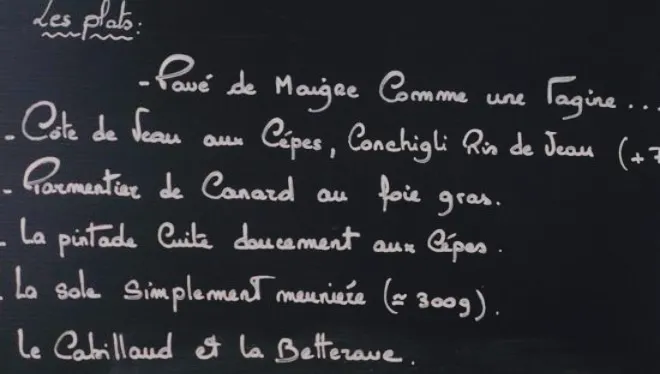 Les plats:
- Pavé de Maigre Comme une Tagine...
- Côte de Veau aux Cépes, Conchigli Ris de Veau (+7
- Parmentier de Canard au foie gras.
- La pintade Cuite doucement aux Cépes.
- La sole Simplement meunière (≈ 300g).
Le Cabillaud et la Betterave.